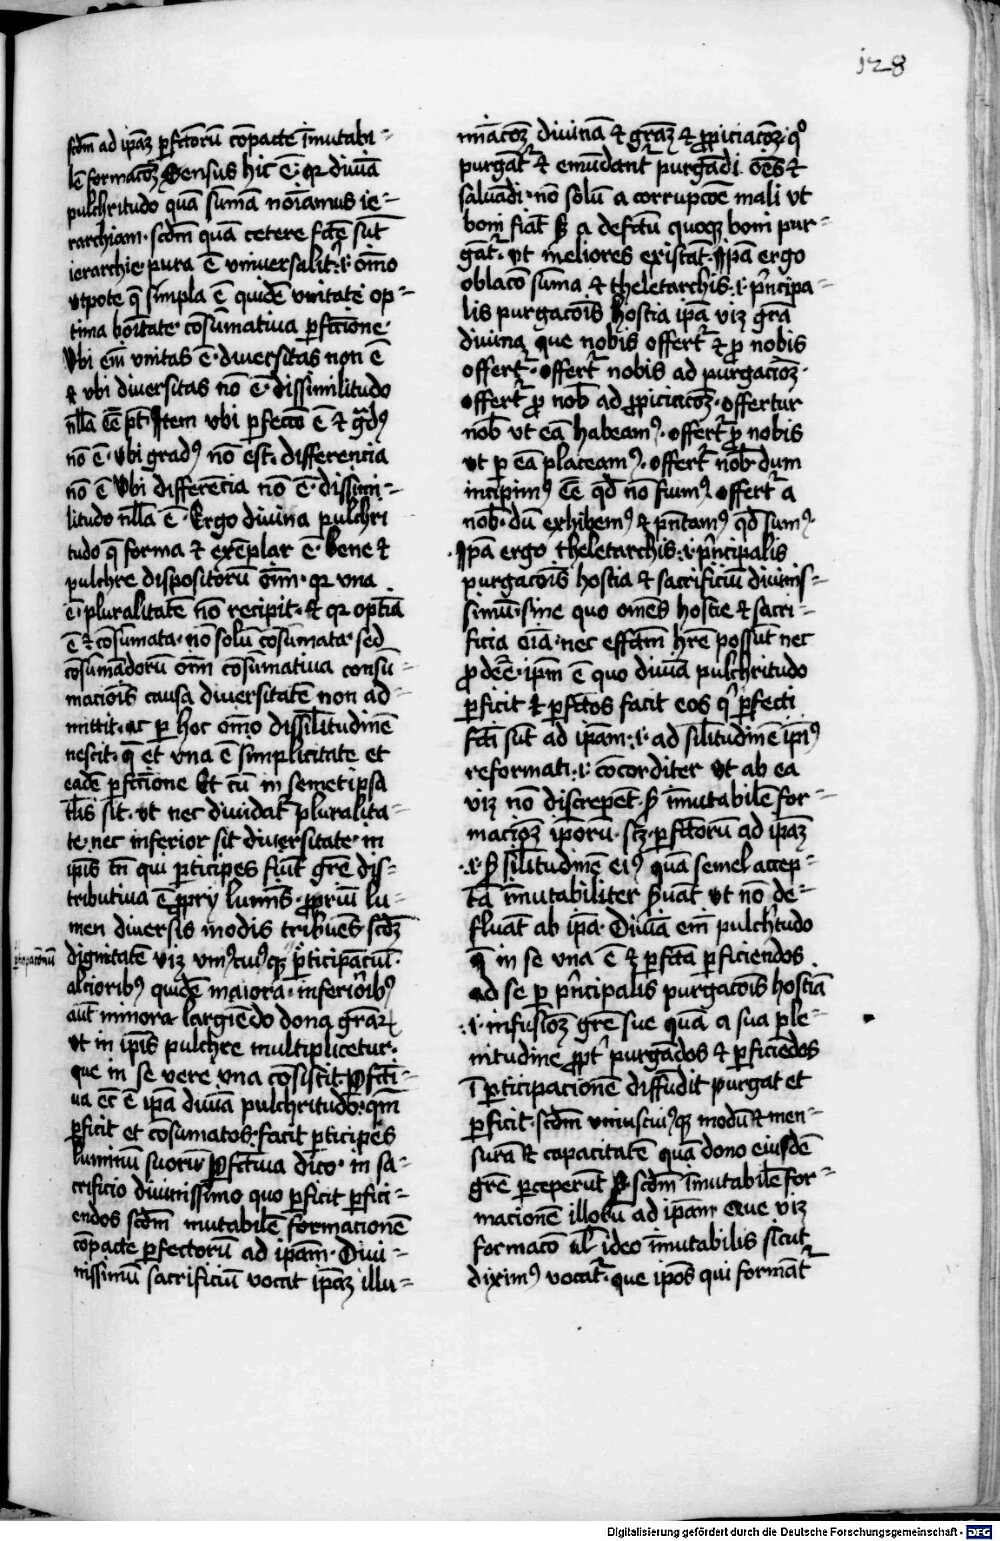 128
scdm ad ipaꝫ pfctorū cōpacte īmutabi-
lē formacōꝫ Sensus hic ē· qꝛ diuīa
pulchritudo quā sūmā noīamus ie-
rarchiam· scdm quā cetere fctē sūt
ierarchie pura ē vniuersalit᷑· i· oīno
vtpote q̄ simpla ē quidē vnitate op-
tima boītate· cōsūmatiua pfctione
Vbi em̄ vnitas ē· diuersitas non ē
⁊ vbi diuersitas nō ē· dissimilitudo
nlla ēē pt̄· Item vbi pfectō ē ⁊ gdꝰ
nō ē· vbi gradꝰ nō est· differencia
nō ē Vbi differēcia nō ē· dissimi-
litudo nlla ē· Ergo diuina pulchri
tudo q̄ forma ⁊ exēplar ē· bene ⁊
pulchre dispositorū oīm· qꝛ vna
ē· pluralitatē nō recipit· ⁊ qꝛ optīa
ē ⁊ cōsūmata· nō solū cōsūmata· sed
cōsūmādorū oīm cōsūmatiua consū-
macionis causa diuersitatē non ad-
mittit· ac p hoc oīno dissilitudinē
nescit· q̄ et vna ē simplicitate et
eadē pfctione Et cū in semetipsa
tlis sit· vt nec diuidat᷑ pluralita-
te· nec inferior sit diuersitate· in
ipis tn̄ qui pticipes fiūt grē dis-
tributiua ē pprij lumīs· ppriū lu-
men diuersis modis tribuēs scdꝫ
dignitatē viꝫ vniꝰcuiꝰqꝫ pticipāciū·
alcioribꝰ quidē maiora· inferioribꝰ
aūt minora largiēdo dona grāꝝ
vt in ipis pulchre multiplicetur·
que in se vere vna cōsistit· Pfcti
ua ēt ē ipa diuīa pulchritudo· qm̄
pficit et cōsumatos facit pticipes
luminū suorū Pfctiua dico· in sa-
crificio diuinissimo quo pficit pfici-
endos scdm mutabilē formacionē
cōpacte pfectorū ad ipam· Diui-
nissimū sacrificiū vocat ipaꝫ illu-
minacōꝫ diuinā ⁊ grāꝫ ⁊ ppiciacōꝫ· qͦ
purgāt᷑ ⁊ emūdant᷑ purgādi oēs ⁊
saluādi· nō solū a corrupcōe mali vt
boni fiāt sꝫ a defctū quoqꝫ boni pur-
gāt᷑· vt meliores existāt· Ipā ergo
oblacō sūma ⁊ theletarchis· i· pncipa-
lis purgacōis hostia ipā viꝫ grā
diuina que nobis offert᷑ ⁊ p nobis
offert᷑· Offert᷑ nobis ad purgacioꝫ·
offert᷑ p nob ad ppiciacōꝫ· offertur
nob vt eā habeamꝰ· offert᷑ p nobis
vt p eā placeamꝰ· offert᷑ nob dum
incipimꝰ ēē qd nō fuimꝰ offert᷑ a
nob· dū exhibemꝰ ⁊ pntamꝰ qd sumꝰ·
Ipā ergo theletarchis· i· pncipalis
purgacōis hostia ⁊ sacrificiū diuinis-
simū· sine quo omēs hostie ⁊ sacri-
ficia oīa· nec effctm hre possūt nec
pdēē· ipm ē quo diuīa pulchritudo
pficit ⁊ pfctos facit eos qͥ pfecti
fcti sūt ad ipam· i· ad silitudinē ipiꝰ
reformati· i· cōcorditer vt ab ea
viꝫ nō discrepēt· p īmutabilē for-
macioꝫ ipoꝝ· scꝫ· pfctorū ad ipaꝫ
·i· p silitudinē eiꝰ quā semel accep-
tā īmutabiliter suāt vt nō de-
fluāt ab ipa· Diuīa em̄ pulchtudo
q̄ in se vna ē ⁊ pfcta pficiēdos
ad se p pncipalis purgacōis hostiā
·i· infusioꝫ grē sue quā a sua ple-
nitudine ppt᷑ purgādos ⁊ pficiēdos
ī pticipacionē diffūdit purgat et
pficit· scdm vniuscuiꝰqꝫ modū ⁊ men-
surā ⁊ capacitatē quā dono eiusdē
grē pceperūt Et scdm īmutabilē for-
macionē illorū ad ipam Que viꝫ
formacō vl ideo īmutabilis sicut
diximꝰ vocat᷑· que ipos qui formāt᷑
Digitalisierung gefördert durch die Deutsche Forschungsgemeinschaft - DFG